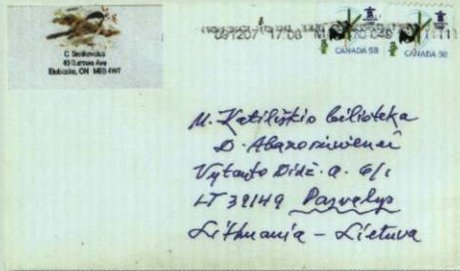 C. Senkevicius
Etobicoke, ON M8Z 4W7
091207 17:08
CANADA 98
CANADA 98
M. Katiliškio biblioteka
D. Abazoriuvienei
Vytauto Didž. a. 6/1
LT 39149 Pasvalys
Lithuania - Lietuva